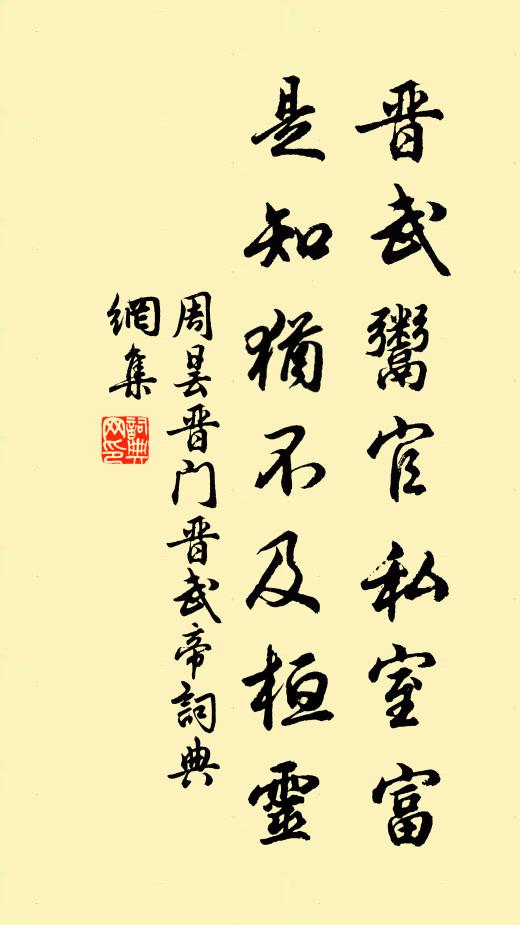 晋武鬻官私室富
是知犹不及桓靈
周昙晋门晋武帝詞典
網集
詞典网印